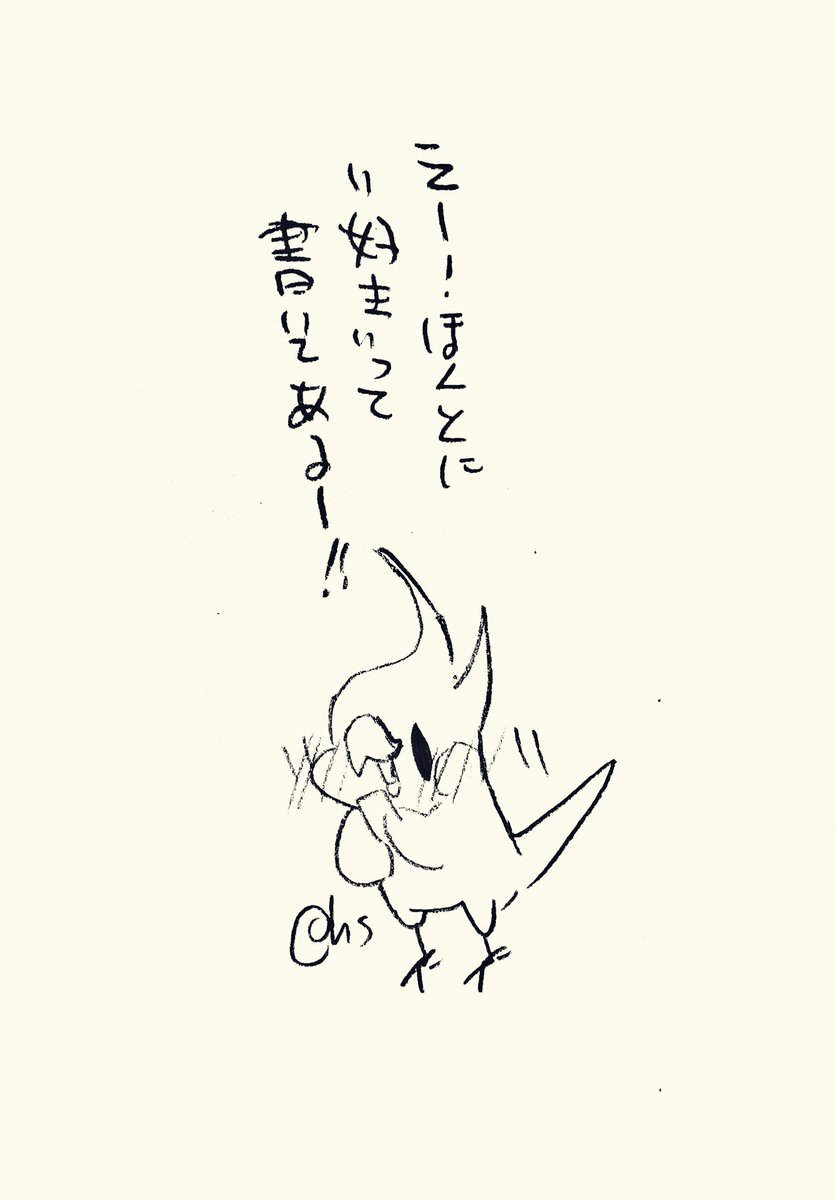 えー!ほんとに
"好き"って
書いてあるー!!
@hs